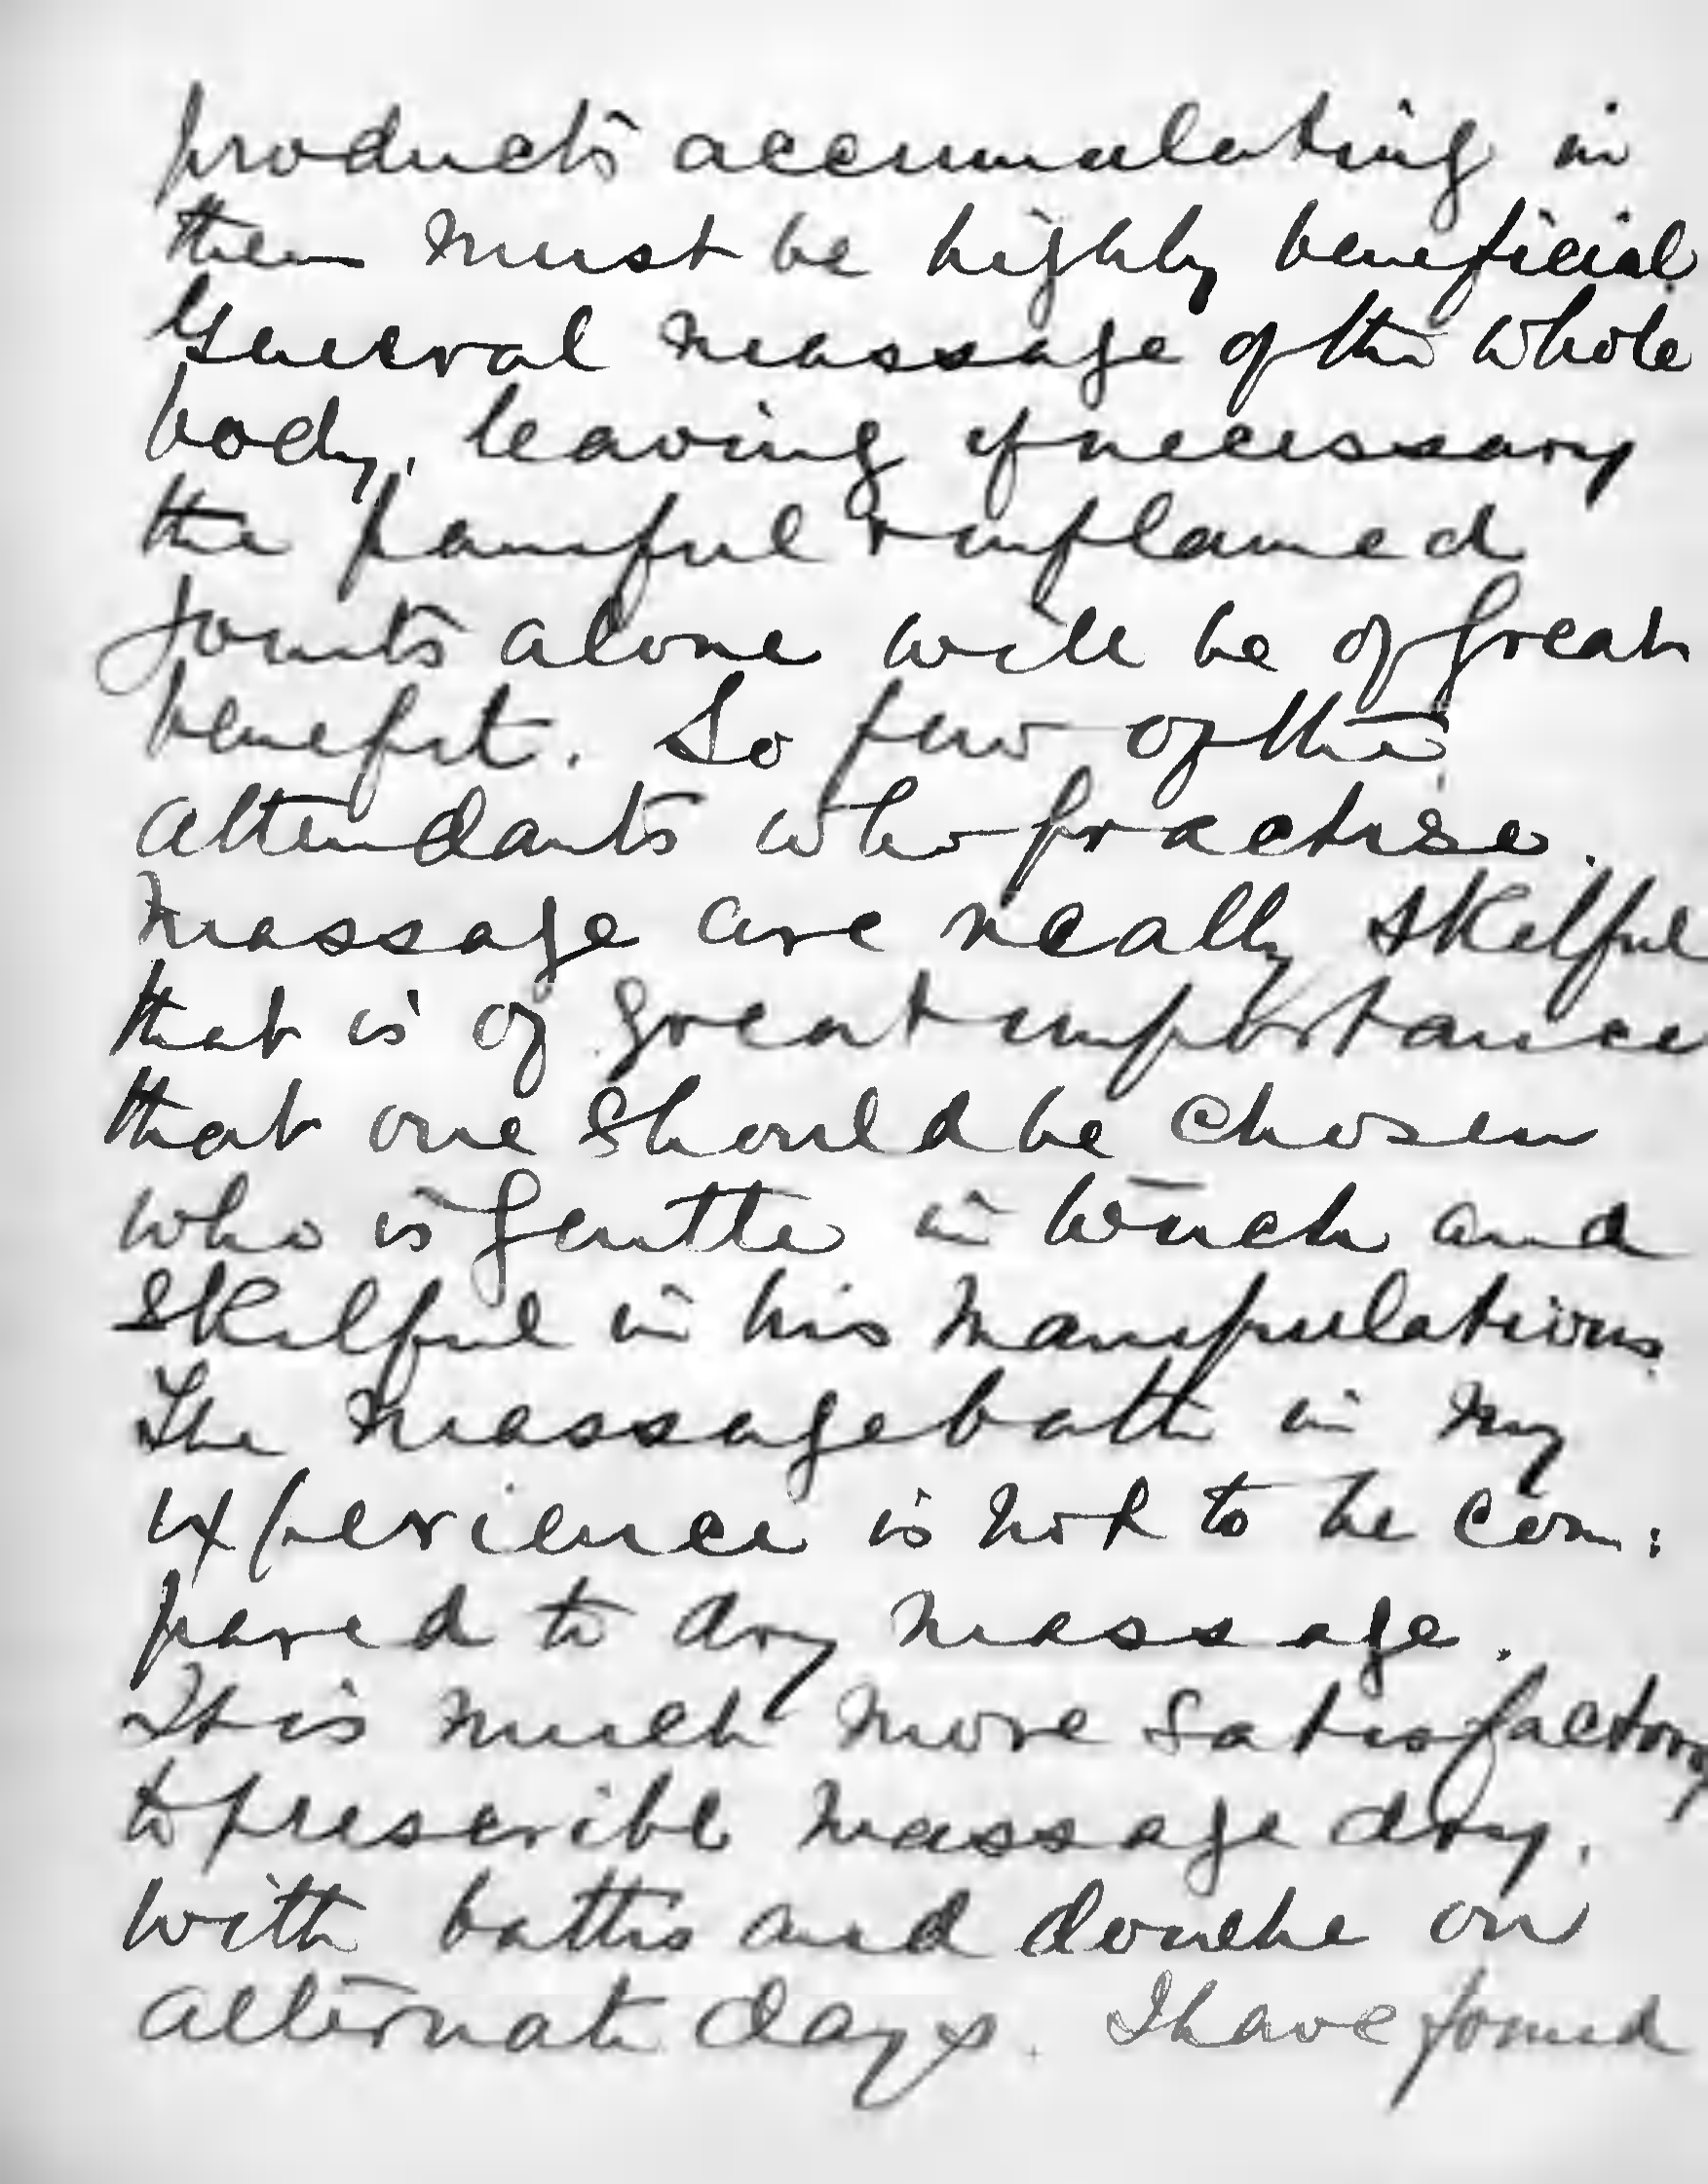 products accumulating in
them must be highly beneficial.
General massage of the whole
body, leaving if necessary
the painful & inflamed
joints alone will be of great
benefit. So few of the
attendants who practise
massage are really skilful
that is of great importance
that one should be chosen
who is gentle in touch and
skilful in his manipulations.
The massage bath in my
experience is not to be com:
pared to dry massage.
It is much more satisfactory
to prescribe massage dry,
with baths and douche on
alternate days. I have found